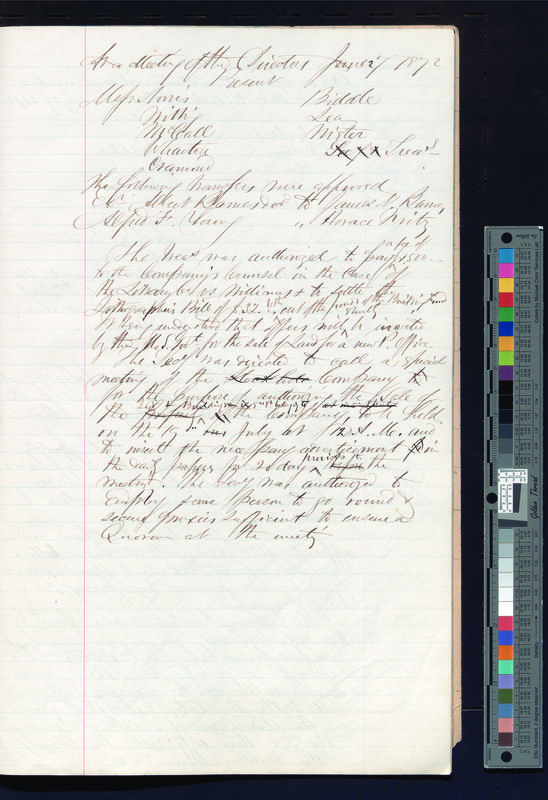 At a Meeting of the Directors June 27 1872
Present
Messrs Norris Biddle
Smith Lea
McCall Mister
Wharton Treasr
Diamond
The following transfers were approved
Est Albert Barnes decd to James N. Barnes
Alfred F. Young " Horace
The Treas was authorized to pay a fee of $500
to the Company's Counsel in the Case of
the vs Williams & to settle the
Lithographer's Bill of $32. out of the funds of the
it being understood that offers will be invited
by the U.S. Govt for the sale of Land for a new P. Office
The Secy was directed to call a special
meeting of the Company to
for the purpose of authorizing the sale
the of the Company to be held
on the 19 July at 12 A.M. and
to insert the necessary advertisement in
the daily papers for 20 days previous to the
meeting. The Secy was authorized to
employ some person to go round &
secure proxies sufficient to ensure a
Quorum at the meetg